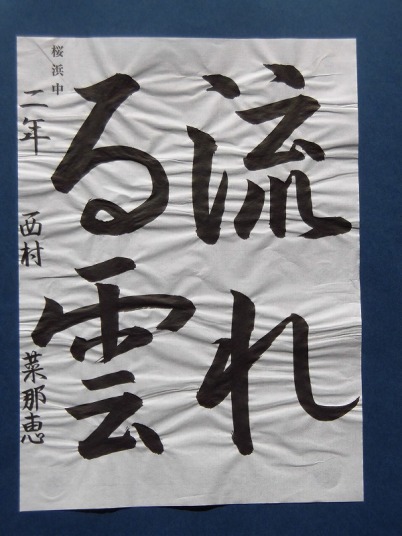 流れ
る雲
桜浜中
二年 西村 菜那恵